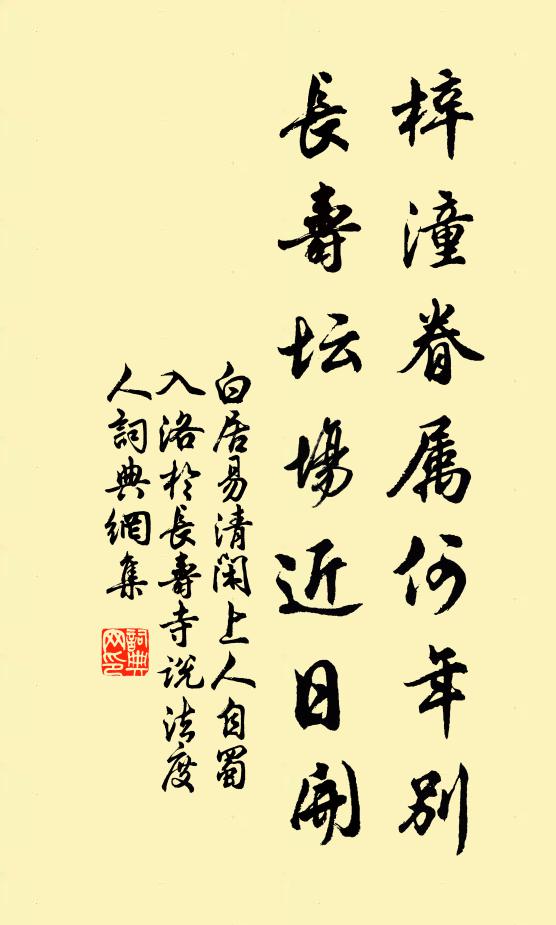 梓潼眷属何年别
長壽坛場近日開
白居易清閑上人自蜀
入洛於長壽寺说法度
人詞典網集
詞典网印